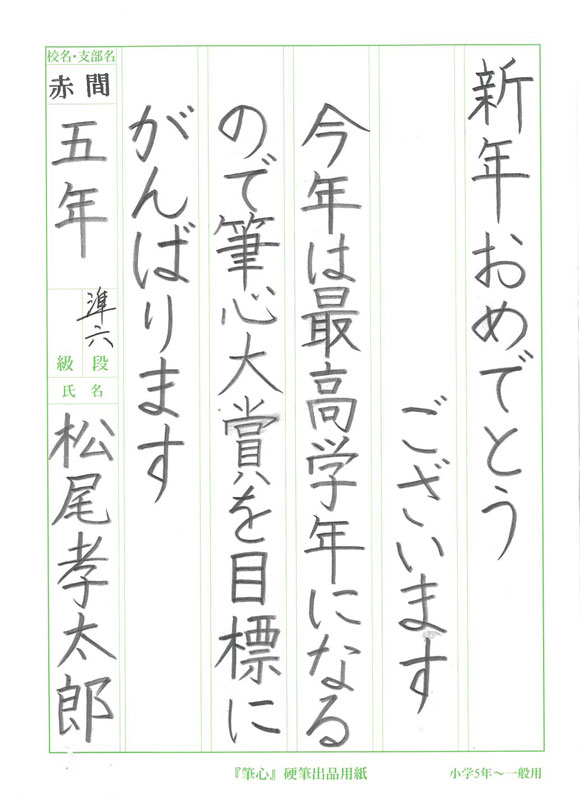 新年おめでとう
ございます
今年は最高学年になる
ので筆心大賞を目標に
がんばります
校名・支部名
赤間
五年
準六
段
級
氏名
松尾孝太郎
『筆心』硬筆出品用紙
小学5年〜一般用